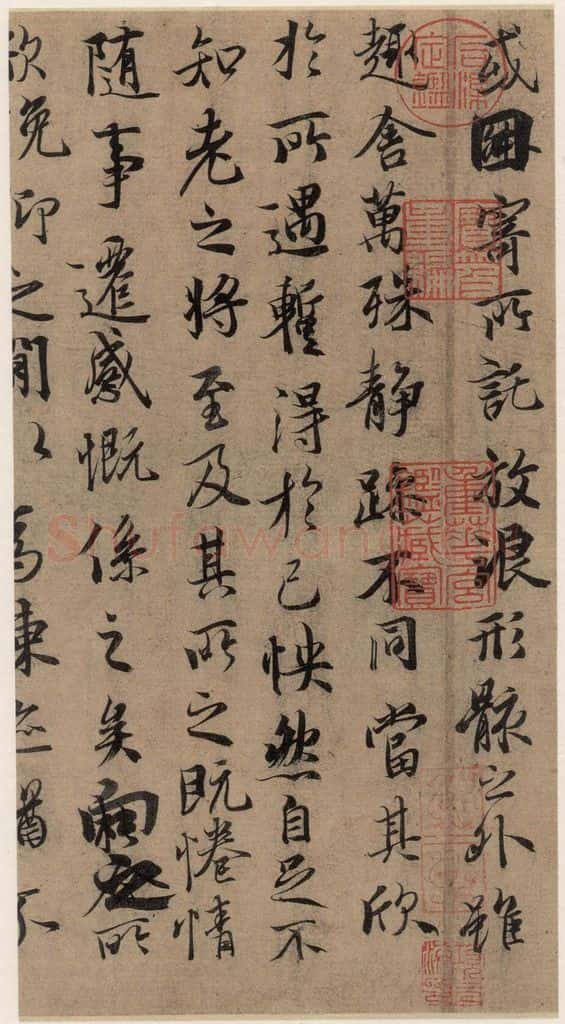 或因寄所託放浪形骸之外雖
趣舍萬殊静躁不同當其欣
於所遇蹔得於己怏然自足不
知老之將至及其所之既惓情
隨事遷感慨係之矣向之所
欣俛仰之閒以爲陳迹猶不